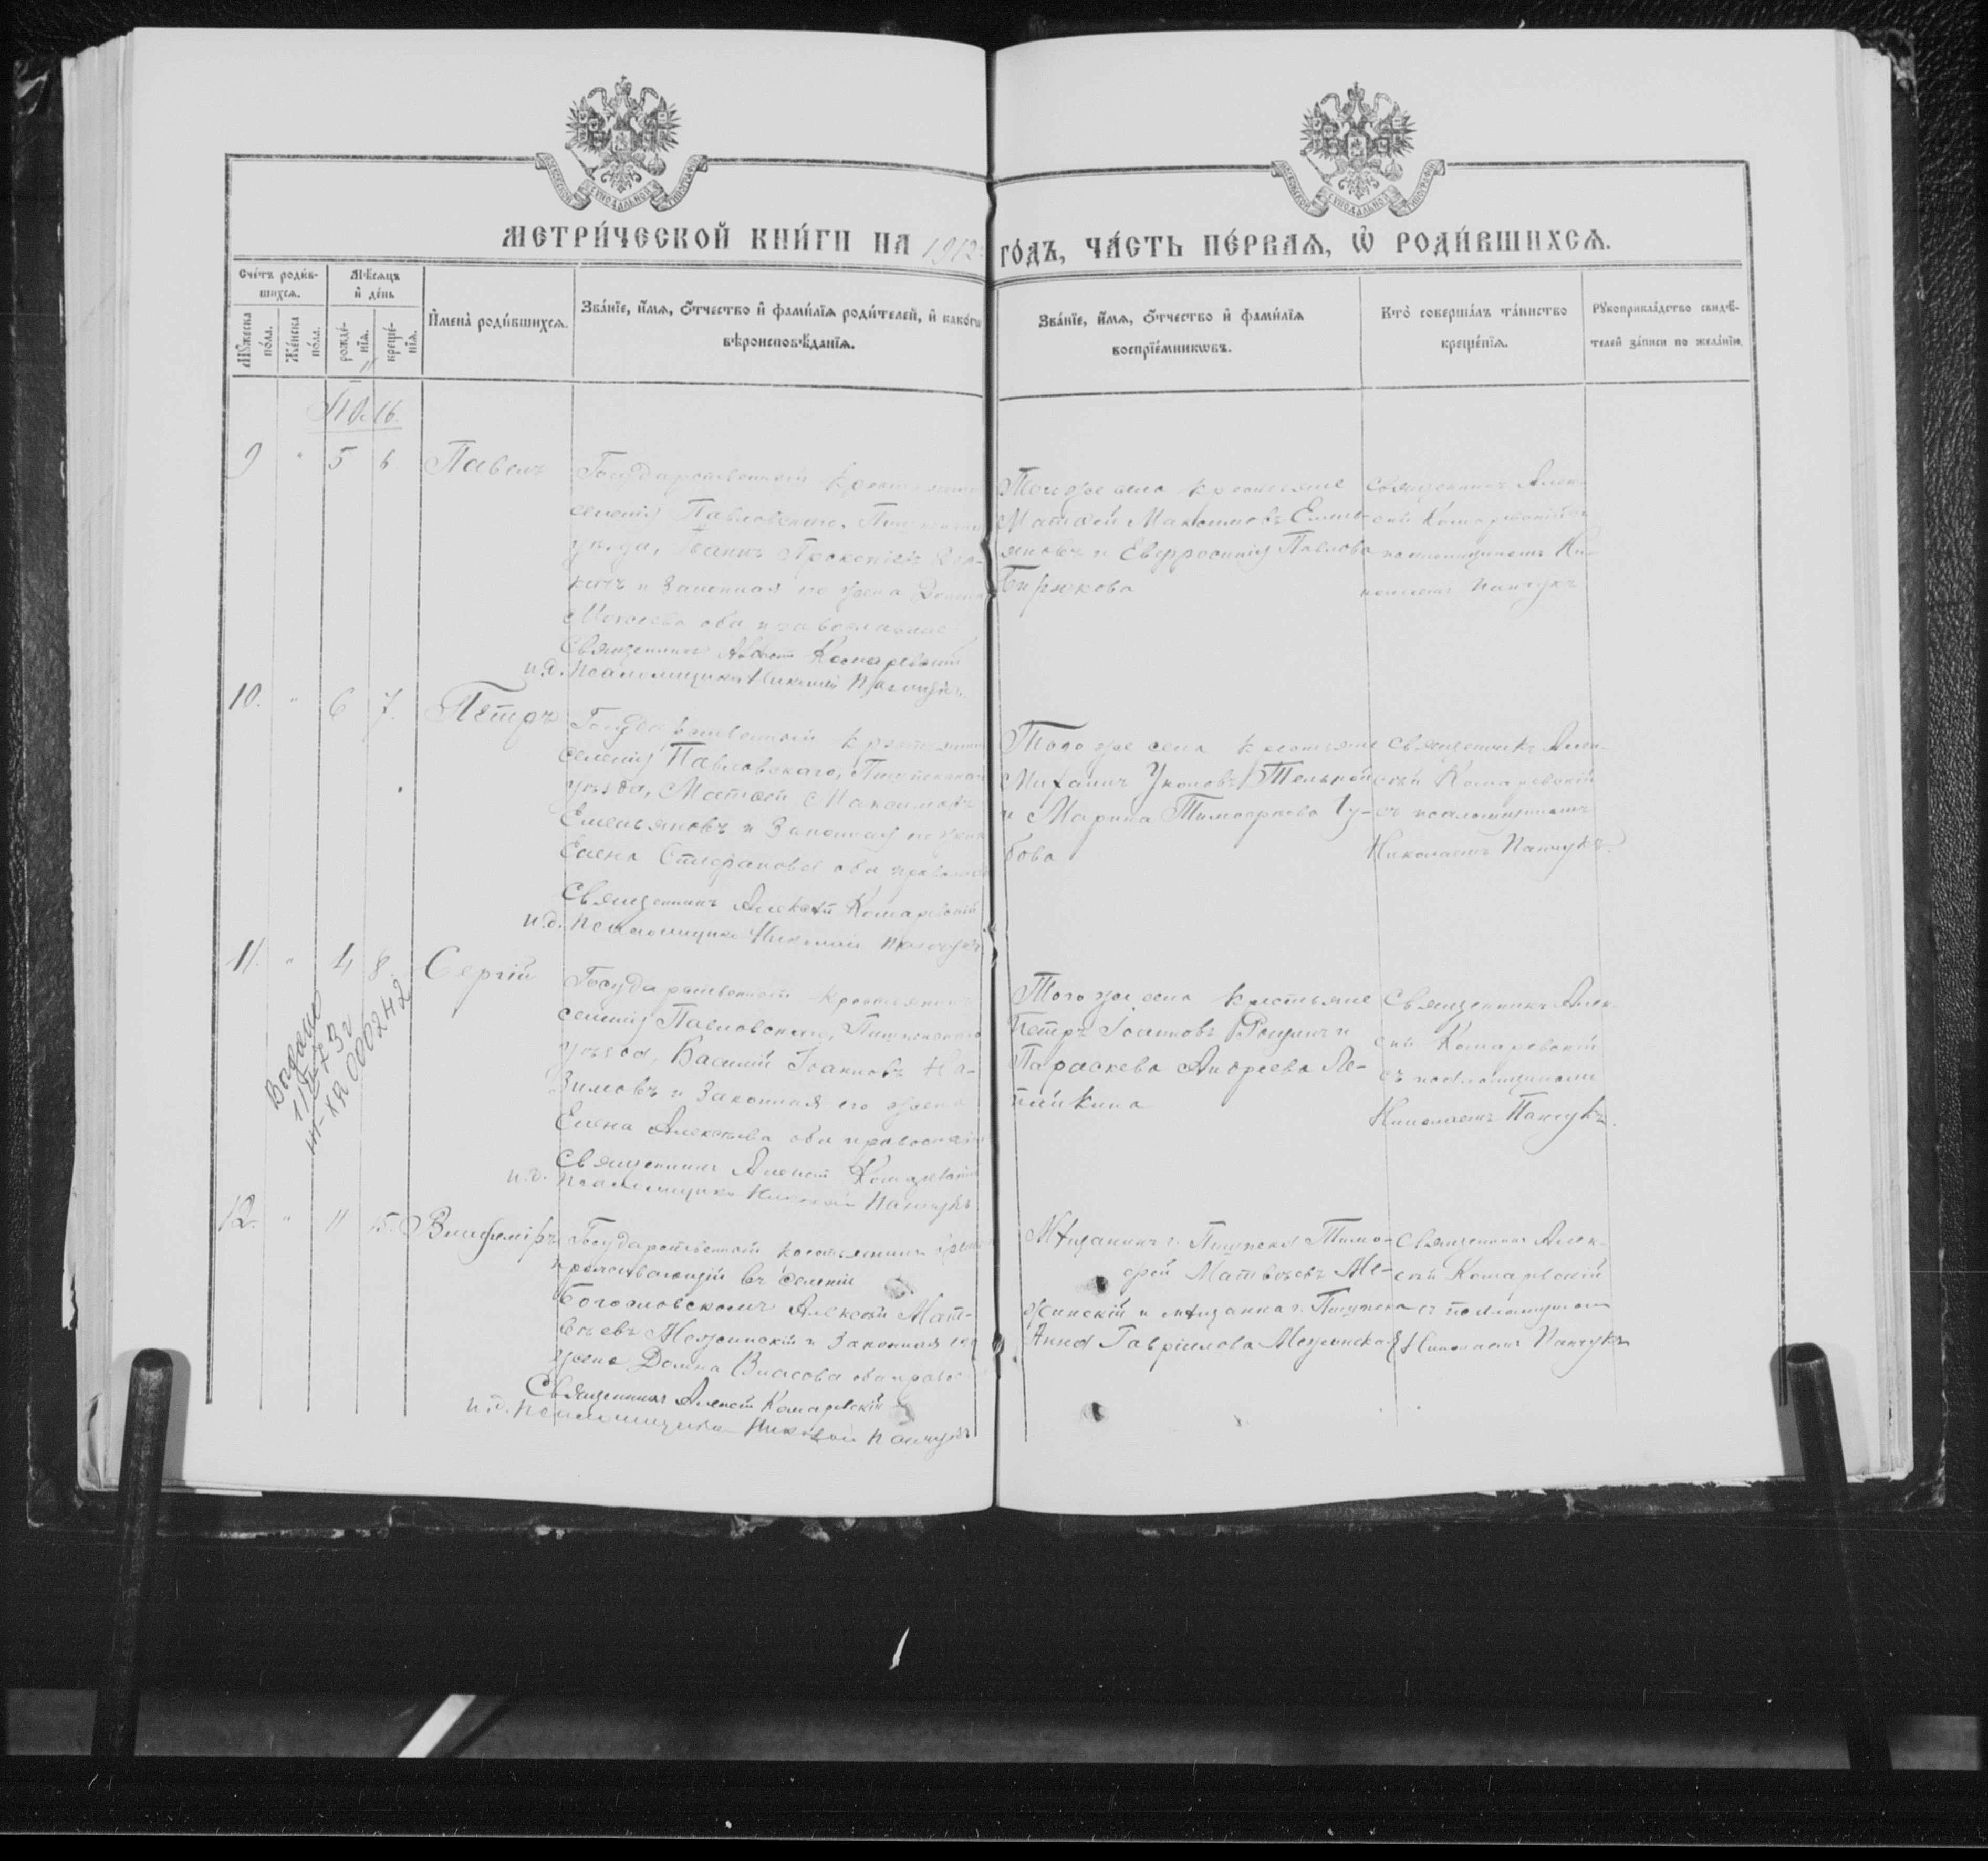 МЕТРИ́ЧЕСКОЙ КНИ́ГИ НА 1912 ГО́ДЪ, ЧА́СТЬ ПЕ́РВАЯ, Ѡ҆ РОДИ́ВШИХСЯ.
Сче́тъ роди́в-
шихся.
Мꙋ́жеска
по́ла.
Же́нска
по́ла.
Мѣ́сяцъ
и҆ де́нь
рожде́-
нїя.
креще́-
нїя.
И҆мена̀ роди́вшихся.
Зва́нїе, и҆́мя, ѻ҆́тчество и҆ фами́лїя роди́телей, и҆ како́гѡ
вѣроисповѣ́данїя.
Зва́нїе, и҆́мя, ѻ҆́тчество и҆ фами́лїя
воспрїе́мникѡвъ.
Кто̀ соверша́лъ та́инство
креще́нїя.
Рꙋкоприкла́дство свидѣ́-
телей за́писи по жела́нїю.
9 " 5 6. Павелъ
Государственный крестьянинъ
селенія Павловскаго, Пишпекскаго
уѣзда, Іоаннъ Прокопіевъ
и законная его жена
Моисеева оба православные
Священникъ Алексѣй Комаревскій
и.д. псаломщика Николай Панчукъ
Того же села крестьяне
Матѳей Максимовъ Емель-
яновъ и Евфросинія Павлова
Бирюкова
Священникъ Алек-
сѣй Комаревскій съ
псаломщикомъ Ни-
колаемъ Панчукъ
10. " 6 7. Петръ
Государственный крестьянинъ
селенія Павловскаго, Пишпекскаго
уѣзда, Матѳей Максимовъ
Емельяновъ и законная его жена
Елена Стефанова оба православные
Священникъ Алексѣй Комаревскій
и.д. псаломщика Николай Панчукъ
Того же села крестьяне
Михаилъ
и Марина Тимофеева Чу-
бова
Священникъ Алек-
сѣй Комаревскій
съ псаломщикомъ
Николаемъ Панчукъ.
11. " 4 8. Сергій
Выдано
000242
Государственный крестьянинъ
селенія Павловскаго, Пишпекскаго
уѣзда, Василій Іоанновъ На-
зимовъ и законная его жена
Елена Алексѣева оба православные
Священникъ Алексѣй Комаревскій
и.д. псаломщика Николай Панчукъ
Того же села крестьяне
Петръ Іоанновъ и
Параскева Андреева
Священникъ Алек-
сѣй Комаревскій
съ псаломщикомъ
Николаемъ Панчукъ.
12. " 11 15. Владиміръ
Государственный крестьянинъ
проживающій въ селеніи
Богословскомъ Алексѣй Мат-
вѣевъ Межинскій и законная его
жена Домна Власова оба правос
Священникъ Алексѣй Комаревскій
и.д. псаломщика Николай Панчукъ
Мѣщанинъ г. Пишпека Тимо-
фей Матвѣевъ Ме-
жинскій и мѣщанка г. Пишпека
Анна Гавріилова Межинская
Священникъ Алек-
сѣй Комаревскій
съ псаломщикомъ
Николаемъ Панчукъ